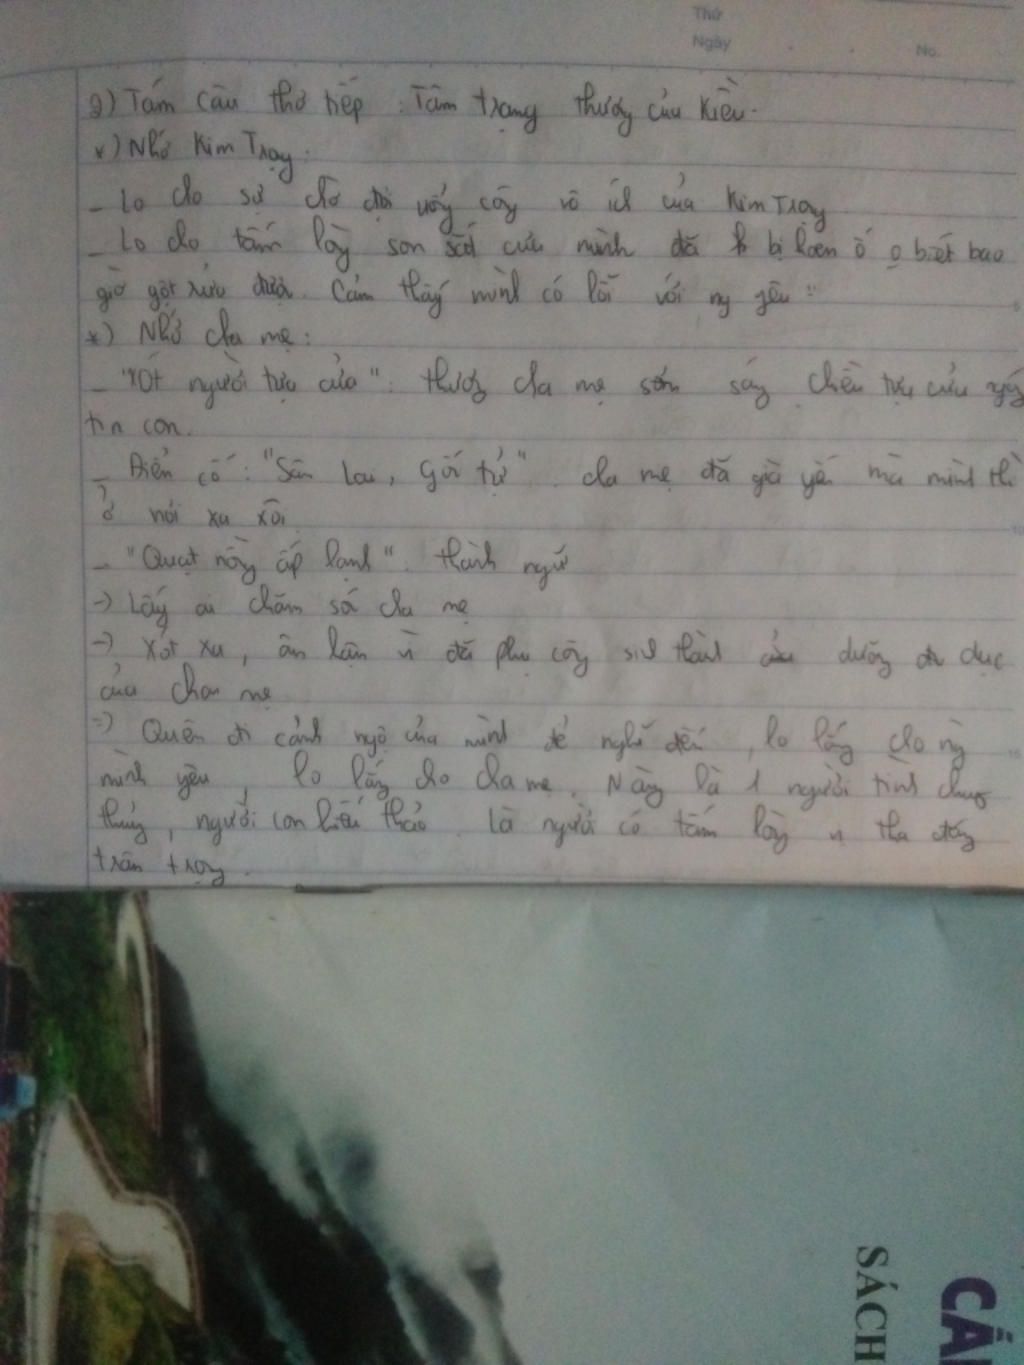 Thứ
Ngày No.
2) Tám câu thơ tiếp : Tâm trạng thương của Kiều.
*) Nhớ Kim Trọng:
- Lo cho sự chờ đợi uổng công vô ích của Kim Trọng
- Lo cho tấm lòng son sắt của mình đã bị hoen ố biết bao
giờ gột rửa được. Cảm thấy mình có lỗi với ng yêu
*) Nhớ cha mẹ:
- "Xót người tựa cửa": thương cha mẹ sớm sáng chiều tựa cửa ngóng
tin con.
- Điển cố: "Sân Lai, gốc tử" cha mẹ đã già yếu mà mình thì
ở nơi xa xôi
- "Quạt nồng ấp lạnh": thành ngữ
-> Lấy ai chăm sóc cha mẹ
-> Xót xa, ân hận vì đã phụ công sinh thành dưỡng dục
của cha mẹ
=> Quên đi cảnh ngộ của mình để nghĩ đến, lo lắng cho ng
mình yêu, lo lắng cho cha mẹ. Nàng là 1 người tình chung
thủy, người con hiếu thảo. Là người có tấm lòng vị tha đáng
trân trọng.
SÁCH